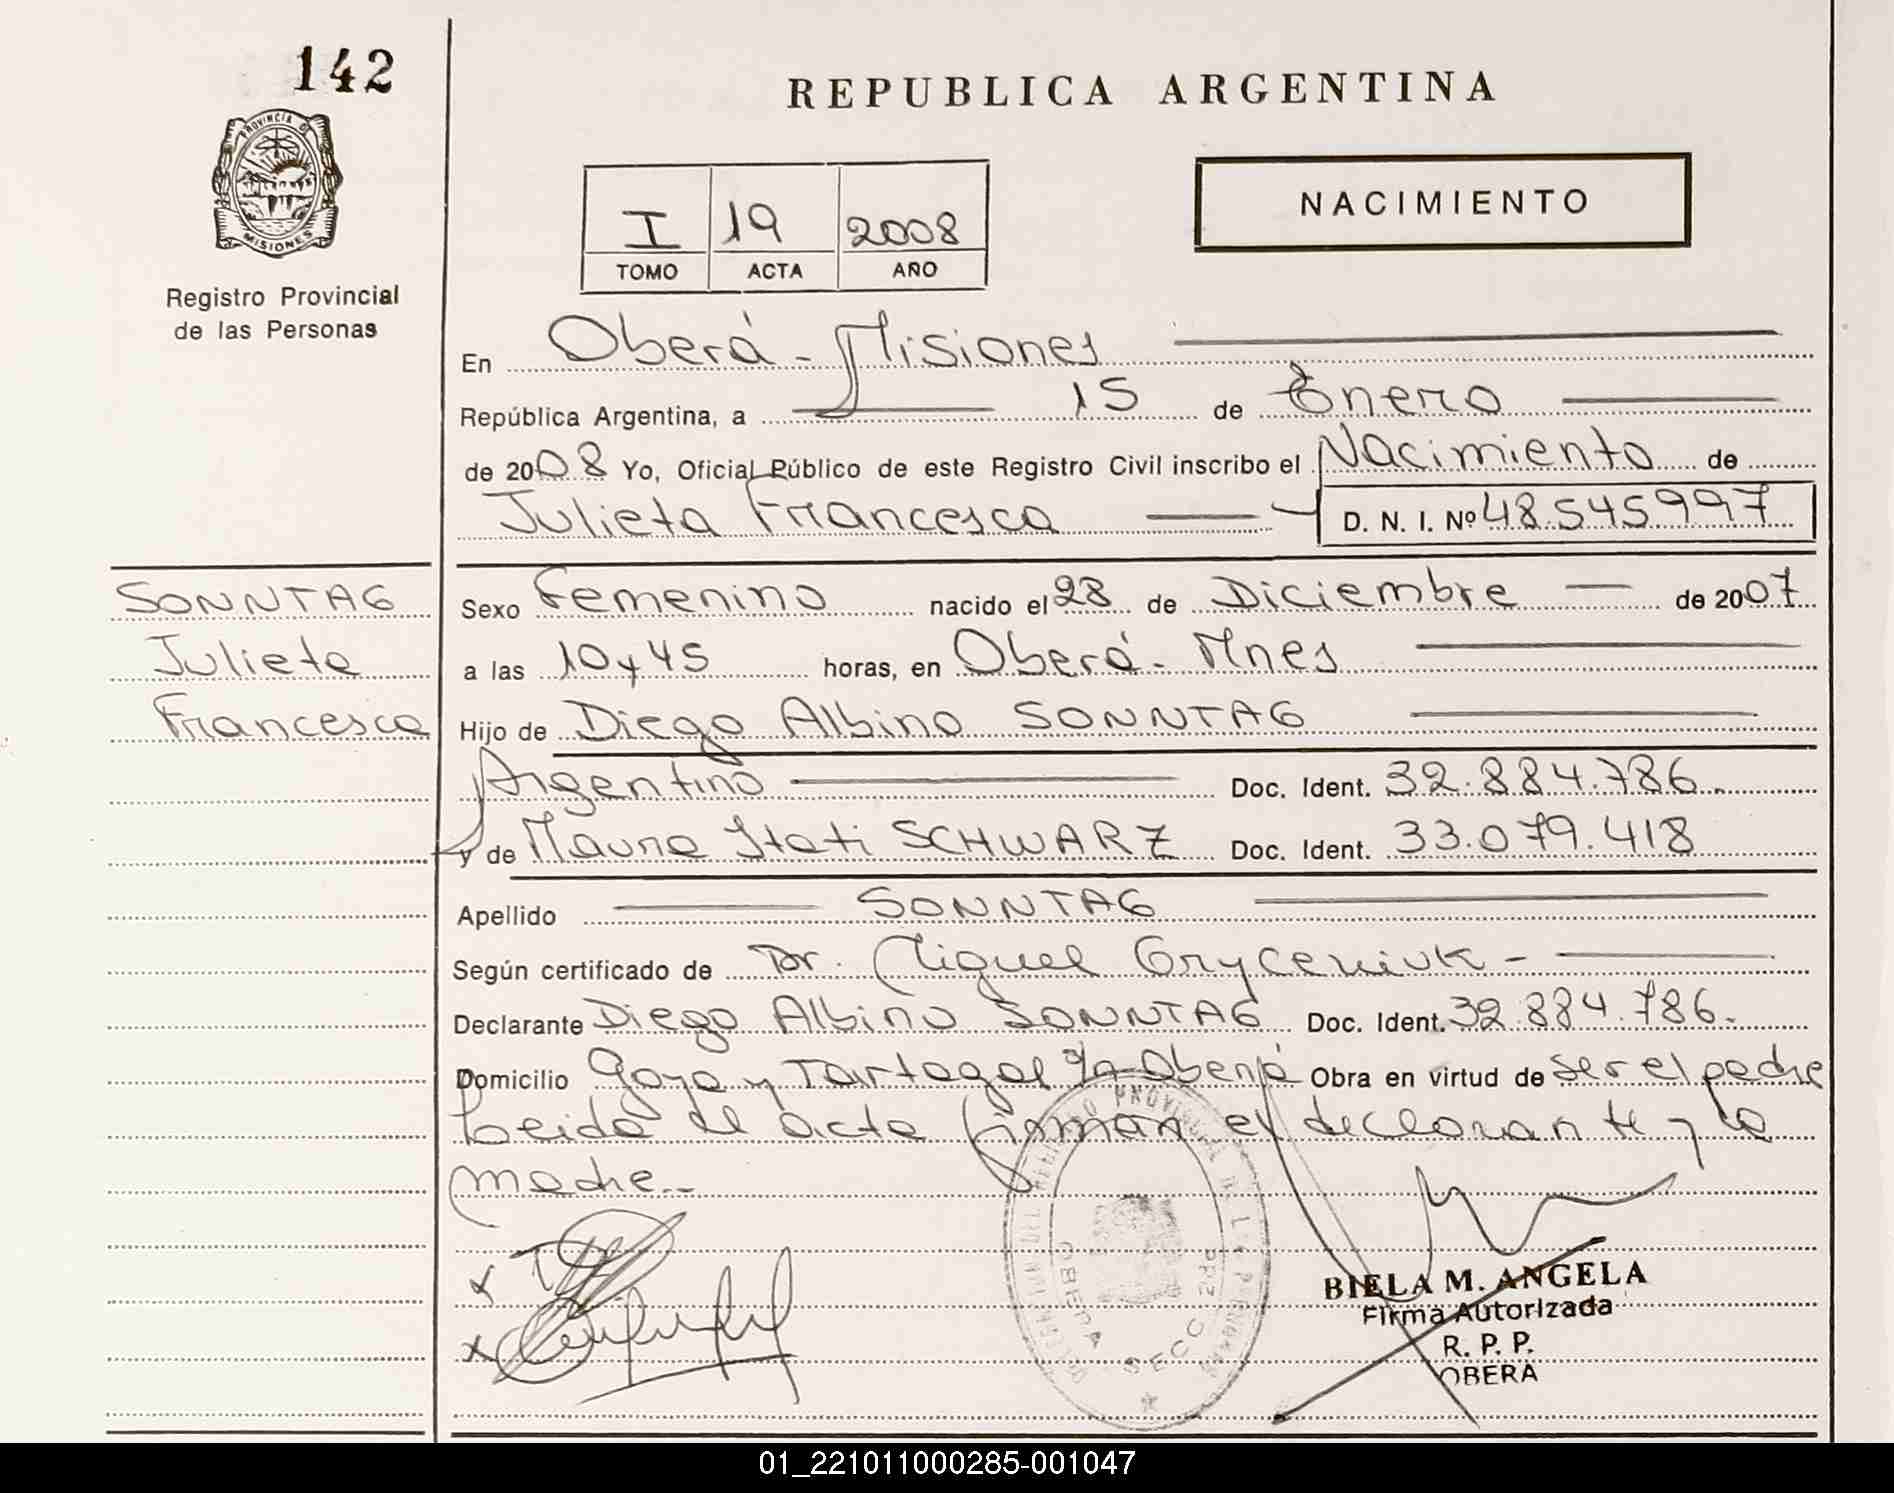 142
REPUBLICA ARGENTINA
PROVINCIA DE
MISIONES
Registro Provincial
de las Personas
I 19 2008
TOMO ACTA AÑO
NACIMIENTO
En Oberá - Misiones
República Argentina, a 15 de Enero
de 2008 Yo, Oficial Público de este Registro Civil inscribo el Nacimiento de
Julieta Francesca D. N. I. Nº 48.545.997
SONNTAG
Julieta
Francesca
Sexo Femenino nacido el 28 de Diciembre de 2007
a las 10 y 45 horas, en Oberá - Mnes
Hijo de Diego Albino SONNTAG
Argentino Doc. Ident. 32.884.786.
y de Maura Itati SCHWARZ Doc. Ident. 33.079.418
Apellido SONNTAG
Según certificado de Dr. Miguel Gryceniuk -
Declarante Diego Albino SONNTAG Doc. Ident. 32.884.786.
Domicilio Goya y Tartagal s/n Oberá Obra en virtud de ser el padre
Leida el acta firman el declarante y la
madre.-
OBERA SECC
BIELA M. ANGELA
Firma Autorizada
R. P. P.
OBERA
01_221011000285-001047